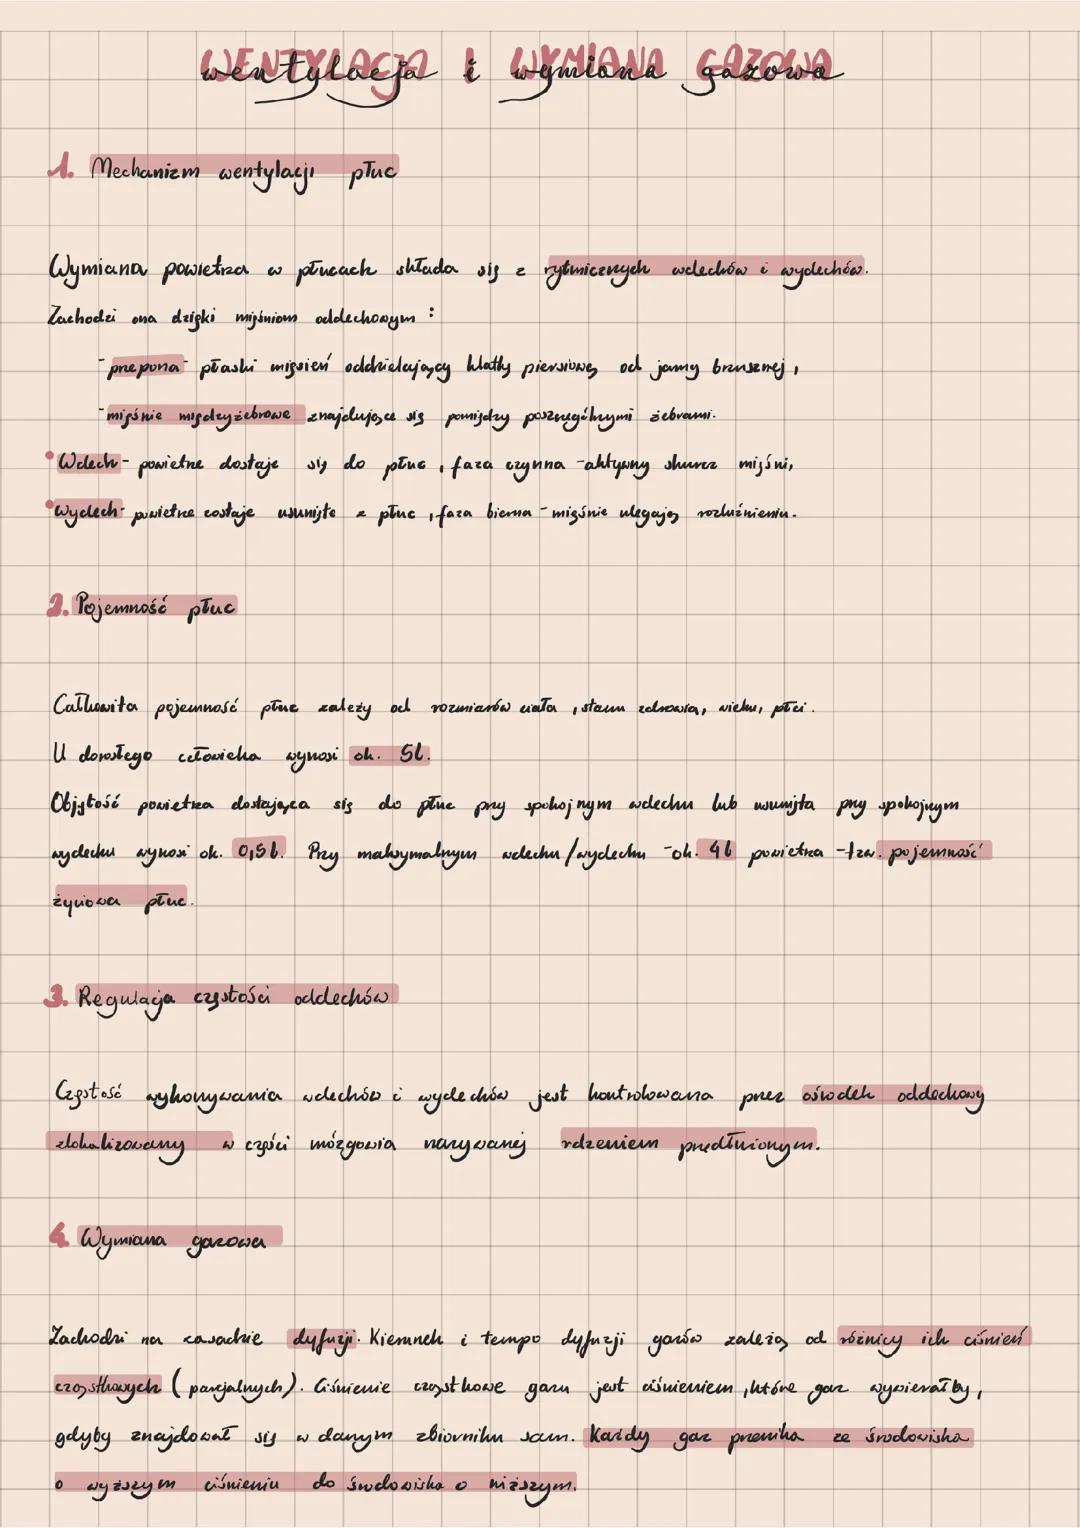 WENTYLACJA i WYMIANA GAZOWA
wentylacja i wymiana gazowa
1. Mechanizm wentylacji płuc
Wymiana powietrza w płucach składa się z rytmicznych wdechów i wydechów.
Zachodzi ona dzięki mięśniom oddechowym :
- przepona - płaski mięsień oddzielający klatkę piersiową od jamy brzusznej,
- mięśnie międzyżebrowe znajdujące się pomiędzy poszczególnymi żebrami.
• Wdech - powietrze dostaje się do płuc, faza czynna - aktywny skurcz mięśni,
• Wydech - powietrze zostaje usunięte z płuc, faza bierna - mięśnie ulegają rozluźnieniu.
2. Pojemność płuc
Całkowita pojemność płuc zależy od rozmiarów ciała, stanu zdrowia, wieku, płci.
U dorosłego człowieka wynosi ok. 5l.
Objętość powietrza dostająca się do płuc przy spokojnym wdechu lub usunięta przy spokojnym
wydechu wynosi ok. 0,5l. Przy maksymalnym wdechu/wydechu - ok. 4l powietrza - tzw. pojemność
życiowa płuc.
3. Regulacja częstości oddechów
Częstość wykonywania wdechów i wydechów jest kontrolowana przez ośrodek oddechowy
zlokalizowany w części mózgowia nazywanej rdzeniem przedłużonym.
4. Wymiana gazowa
Zachodzi na zasadzie dyfuzji. Kierunek i tempo dyfuzji gazów zależą od różnicy ich ciśnień
cząstkowych (parcjalnych). Ciśnienie cząstkowe gazu jest ciśnieniem, które gaz wywierałby,
gdyby znajdował się w danym zbiorniku sam. Każdy gaz przenika ze środowiska
o wyższym ciśnieniu do środowiska o niższym.